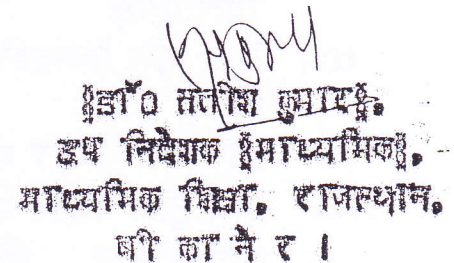 §डा० सतीश कुमार§.
उप निदेशक §माध्यमिक§.
माध्यमिक शिक्षा. राजस्थान.
बी का ने र ।